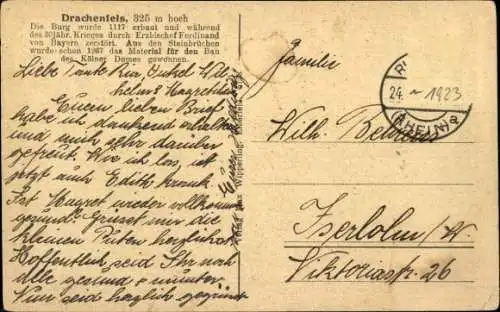 Drachenfels, 325 m hoch
Die Burg wurde 1117 erbaut und während
des 30jähr. Krieges durch Erzbischof Ferdinand
von Bayern zerstört. Aus den Steinbrüchen
wurde schon 1267 das Material für den Bau
des Kölner Domes gewonnen.
Liebe Tante Ria, Onkel Wil-
helm & Magretchen
Euren lieben Brief
habe ich dankend erhalten
und mich sehr darüber
gefreut. Wie ich las, ist
jetzt auch Edith krank.
Ist Magret wieder vollkommen
gesund? Grüsset mir die
kleinen Puten herzlichst
Hoffentlich seid Ihr noch
alle gesund & munter.
Nun seid herzlich gegrüsst
Familie
Wilh.
Iserlohn/W.
Viktoriastr. 26
24. 1923
(RHEIN) a